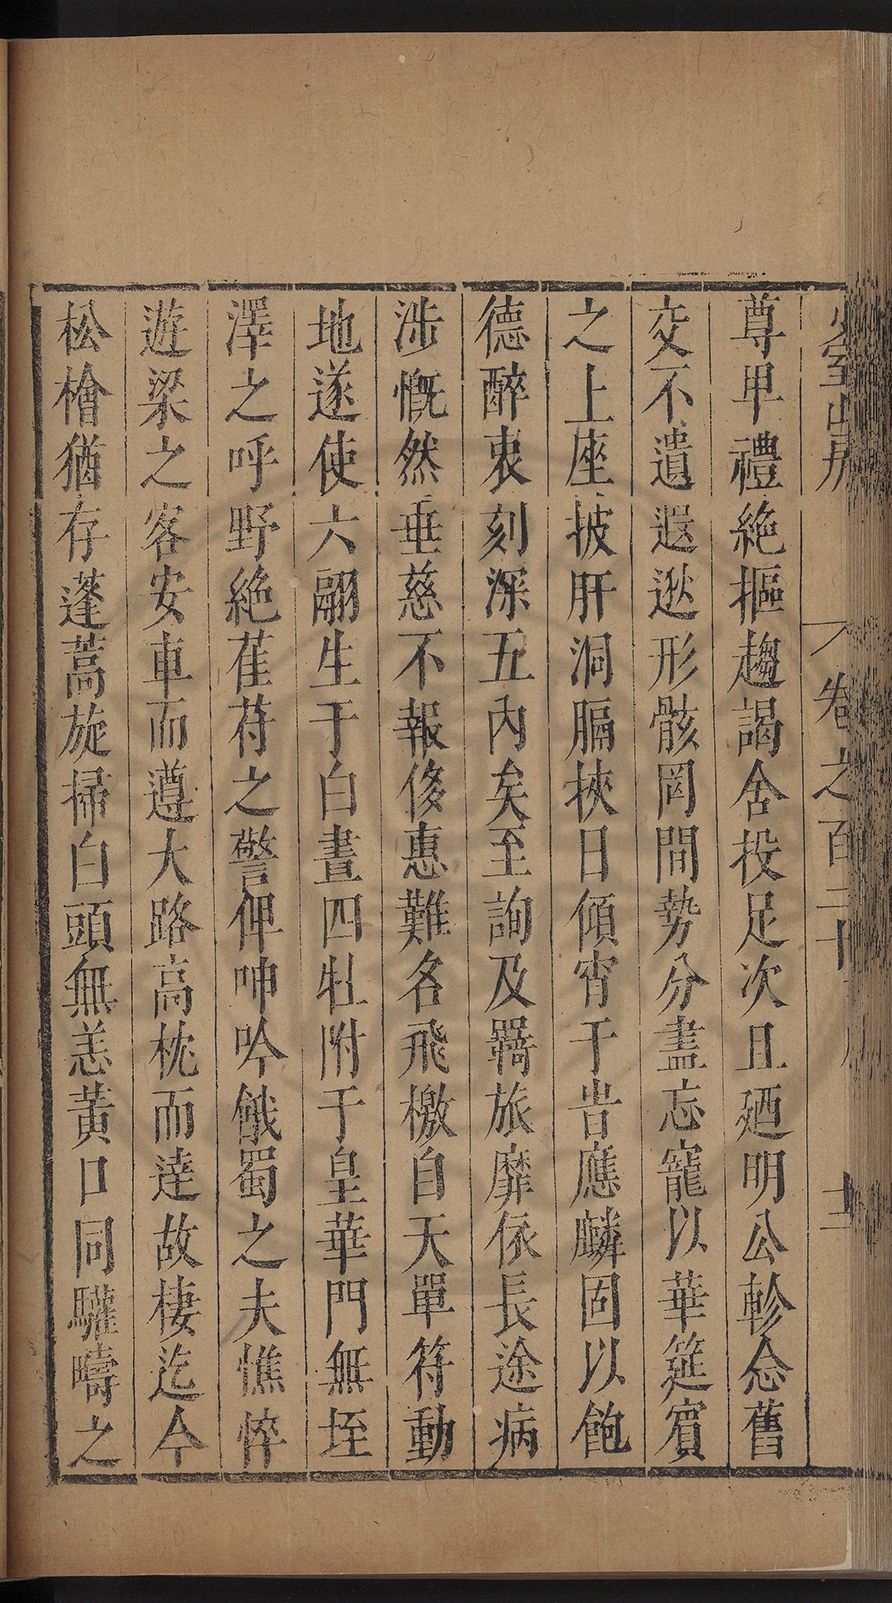 少室山房
卷之百二十
十二
尊卑禮絶摳趨謁舍投足次且廼明公軫念舊
交不遺遐逖形骸罔間勢分盡忘寵以華筵賓
之上座披肝洞膈挾日傾宵干旹應麟固以飽
德醉衷刻深五內矣至詢及羇旅靡依長途病
涉慨然垂慈不報侈惠難名飛檄自天單符動
地遂使六翮生于白晝四牡附于皇華門無垤
澤之呼野絶萑苻之警俾呻吟餓蜀之夫憔悴
遊梁之客安車而遵大路高枕而達故棲迄今
松檜猶存蓬蒿旋掃白頭無恙黃口同驩疇之